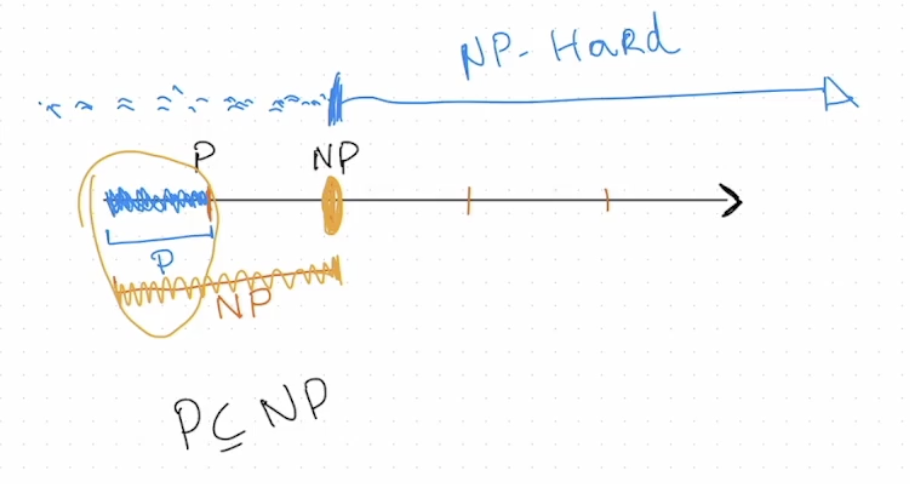 NP-Hard
P NP
P
NP
P ⊆ NP